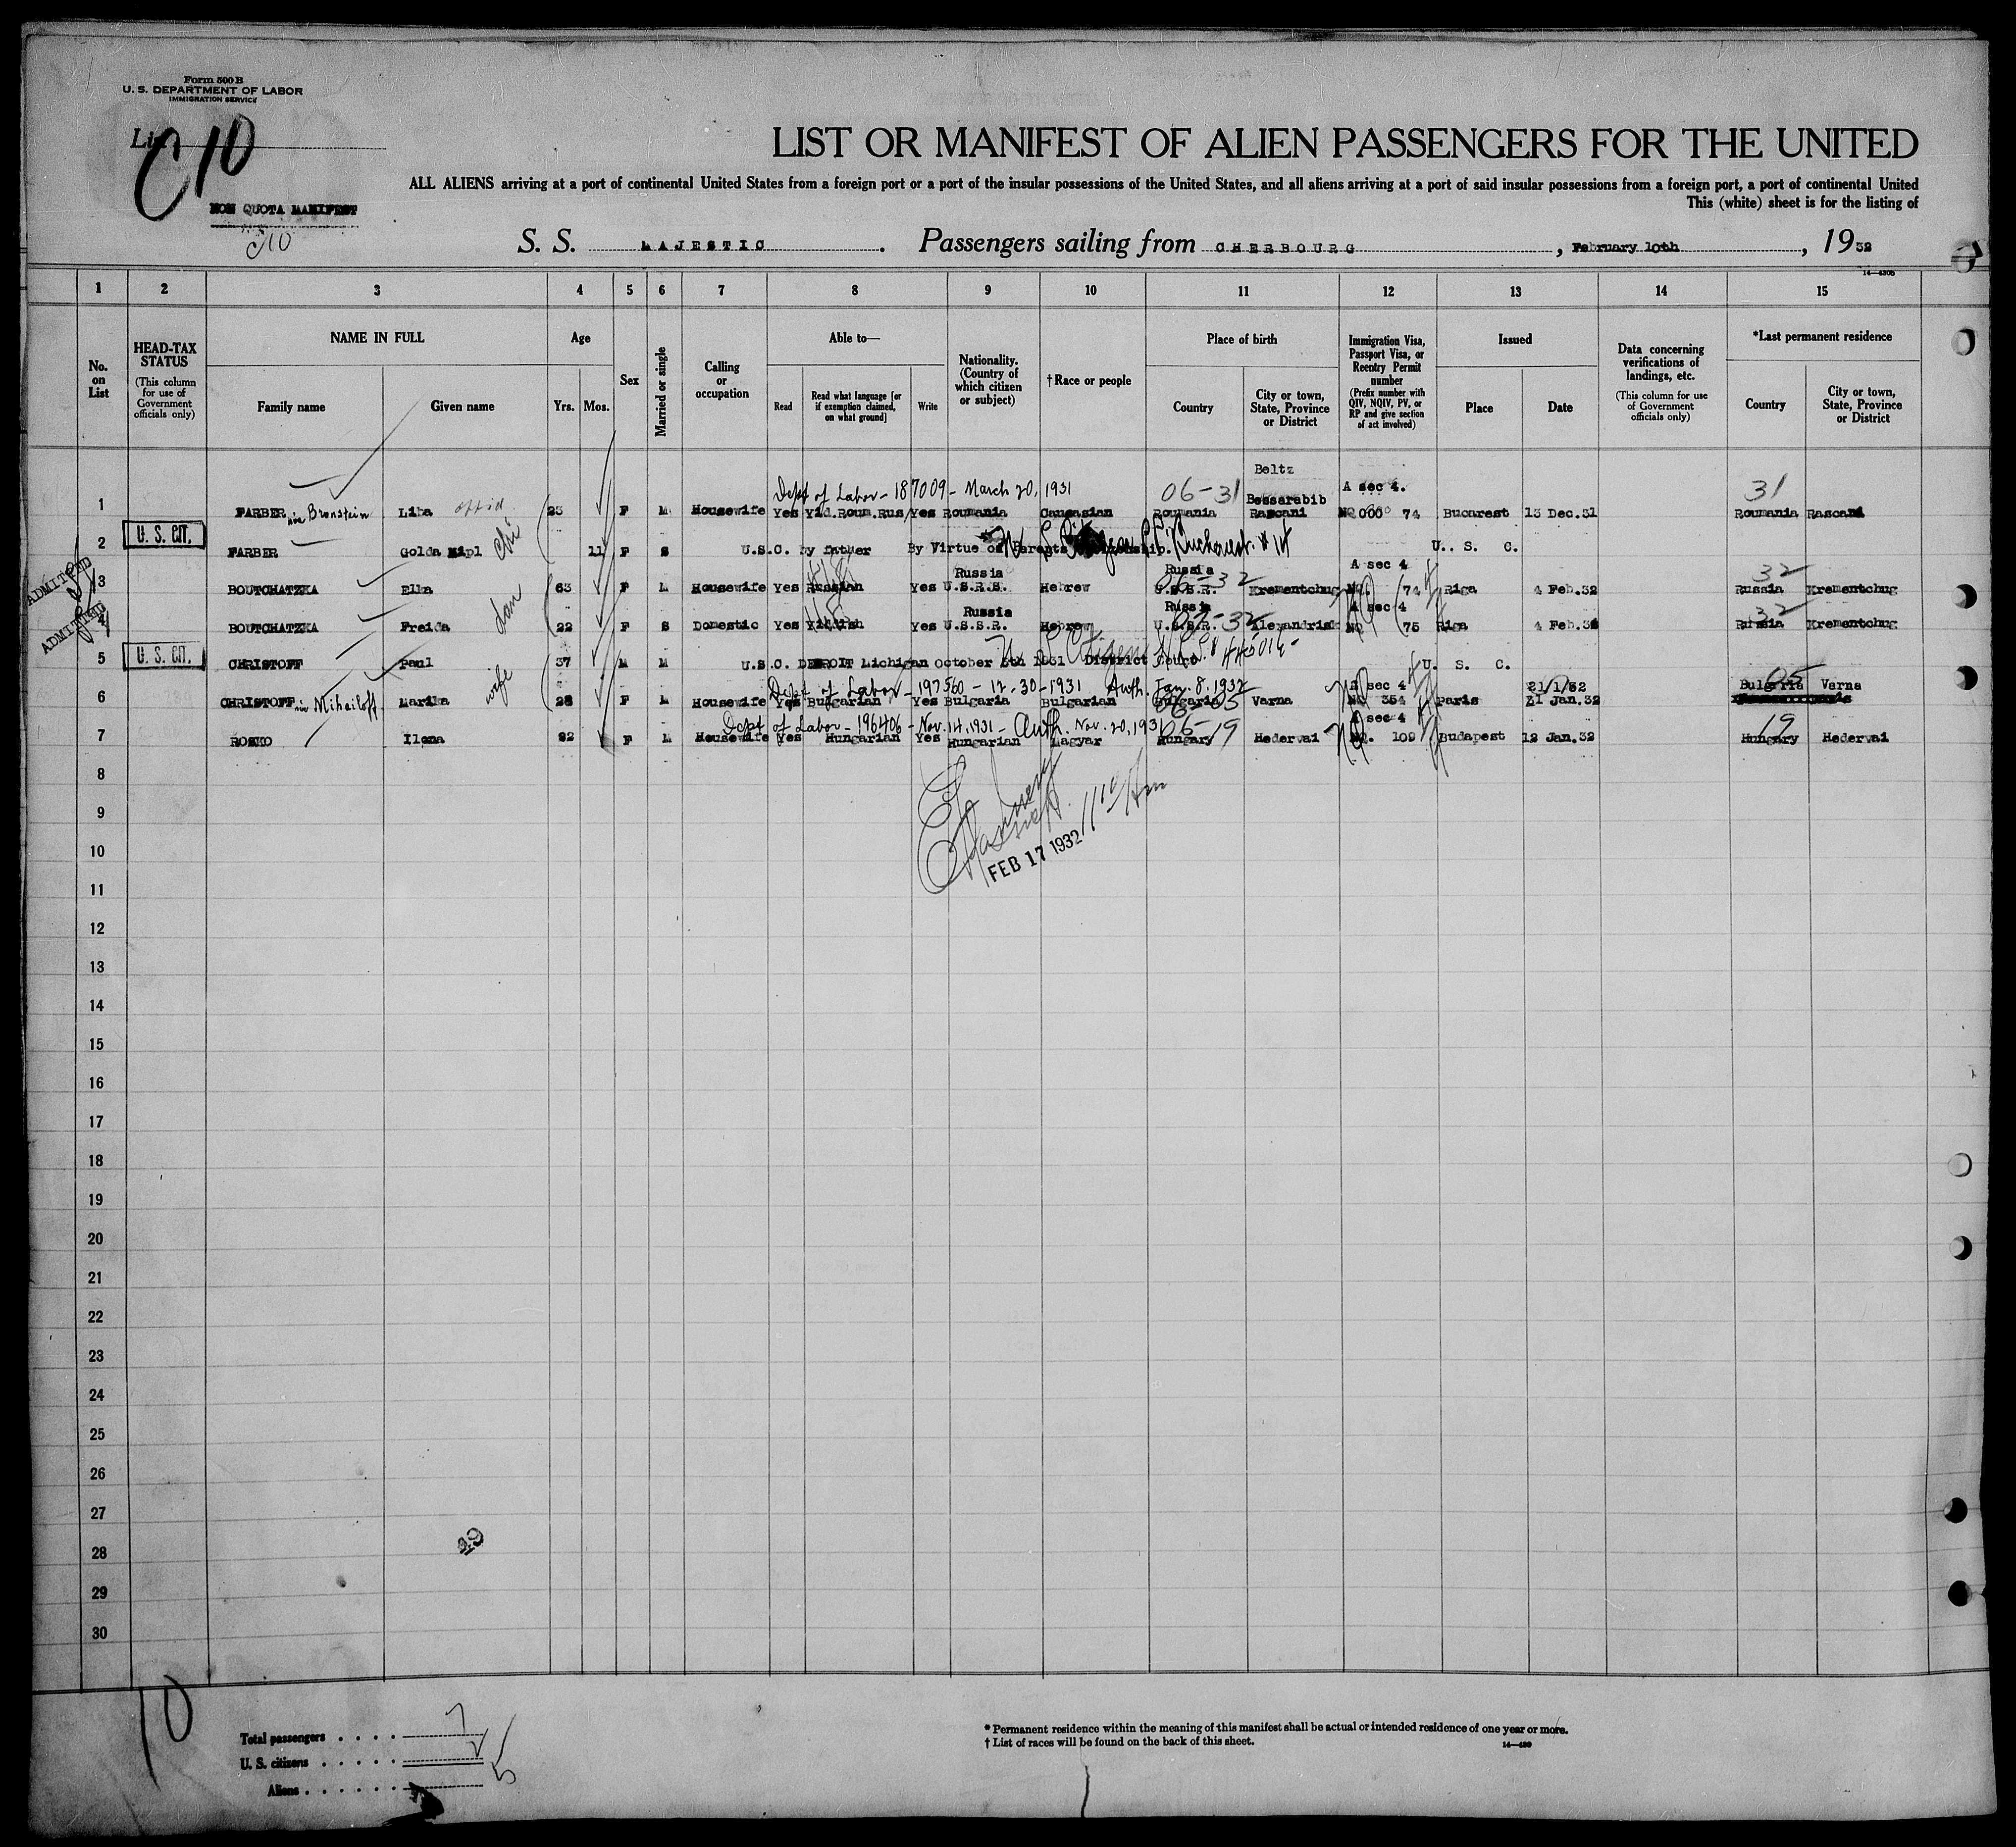 Form 500 B
U. S. DEPARTMENT OF LABOR
IMMIGRATION SERVICE
C 10
NON QUOTA MANIFEST
C10
LIST OR MANIFEST OF ALIEN PASSENGERS FOR THE UNITED
ALL ALIENS arriving at a port of continental United States from a foreign port or a port of the insular possessions of the United States, and all aliens arriving at a port of said insular possessions from a foreign port, a port of continental United
This (white) sheet is for the listing of
S. S. MAJESTIC. Passengers sailing from CHERBOURG, February 10th, 1932
14—430b
1 2 3 4 5 6 7 8 9 10 11 12 13 14 15
No. on List
HEAD-TAX STATUS
(This column for use of Government officials only)
NAME IN FULL
Family name
Given name
Age
Yrs. Mos.
Sex
Married or single
Calling or occupation
Able to—
Read
Read what language [or if exemption claimed, on what ground]
Write
Nationality. (Country of which citizen or subject)
†Race or people
Place of birth
Country
City or town, State, Province or District
Immigration Visa, Passport Visa, or Reentry Permit number
(Prefix number with QIV, NQIV, PV, or RP and give section of act involved)
Issued
Place
Date
Data concerning verifications of landings, etc.
(This column for use of Government officials only)
*Last permanent residence
Country
City or town, State, Province or District
Beltz
Dept of Labor - 187009 - March 20, 1931 06-31 Bessarabib A sec 4. 31
1 FARBER née Bronstein Liba 23 F M Housewife Yes Yid.Roum.Rus/Yes Roumania Caucasian Roumania Rascani 74 Bucarest 13 Dec.31 Roumania Rascani
U. S. CIT.
2 FARBER Golda 11 F S U.S.C. by father By Virtue of Parents Bucharest U. S. C.
Russia Russia A sec 4 32
ADMITTED
3 BOUTCHATZKA Ella 63 F M Housewife Yes Russian Yes U.S.R.S. Hebrew U.S.S.R. 06-32 Krementchug 74 Riga 4 Feb.32 Russia Krementchug
Russia Russia A sec 4 32
ADMITTED
4 BOUTCHATZKA Freida 22 F S Domestic Yes Yiddish Yes U.S.S.R. Hebrew U.S.S.R. Alexandrisk 75 Riga 4 Feb.32 Russia Krementchug
U. S. CIT.
5 CHRISTOFF Paul 37 M M U.S.C. DETROIT Michigan October 5th 1931 District Court U. S. C.
wife Dept of Labor - 197560 - 12-30-1931 Auth. Jan. 8. 1932 A sec 4 21/1/32 Bulgaria Varna
6 CHRISTOFF née Mihailoff Marika 28 F M Housewife Yes Bulgarian Yes Bulgaria Bulgarian Bulgaria Varna 354 Paris 21 Jan.32
Dept of Labor - 196406 - Nov. 14, 1931 - Auth. Nov. 20, 1931 06-19 A sec 4 19
7 ROSKO Ilona F M Housewife Yes Hungarian Yes Hungarian Magyar Hungary Hedervai 109 Budapest 12 Jan.32 Hungary Hedervai
8
9
FEB 17 1932
10
11
12
13
14
15
16
17
18
19
20
21
22
23
24
25
26
27
28
29
30
10
Total passengers 7
U. S. citizens 2
Aliens 5
* Permanent residence within the meaning of this manifest shall be actual or intended residence of one year or more.
† List of races will be found on the back of this sheet.
14—430